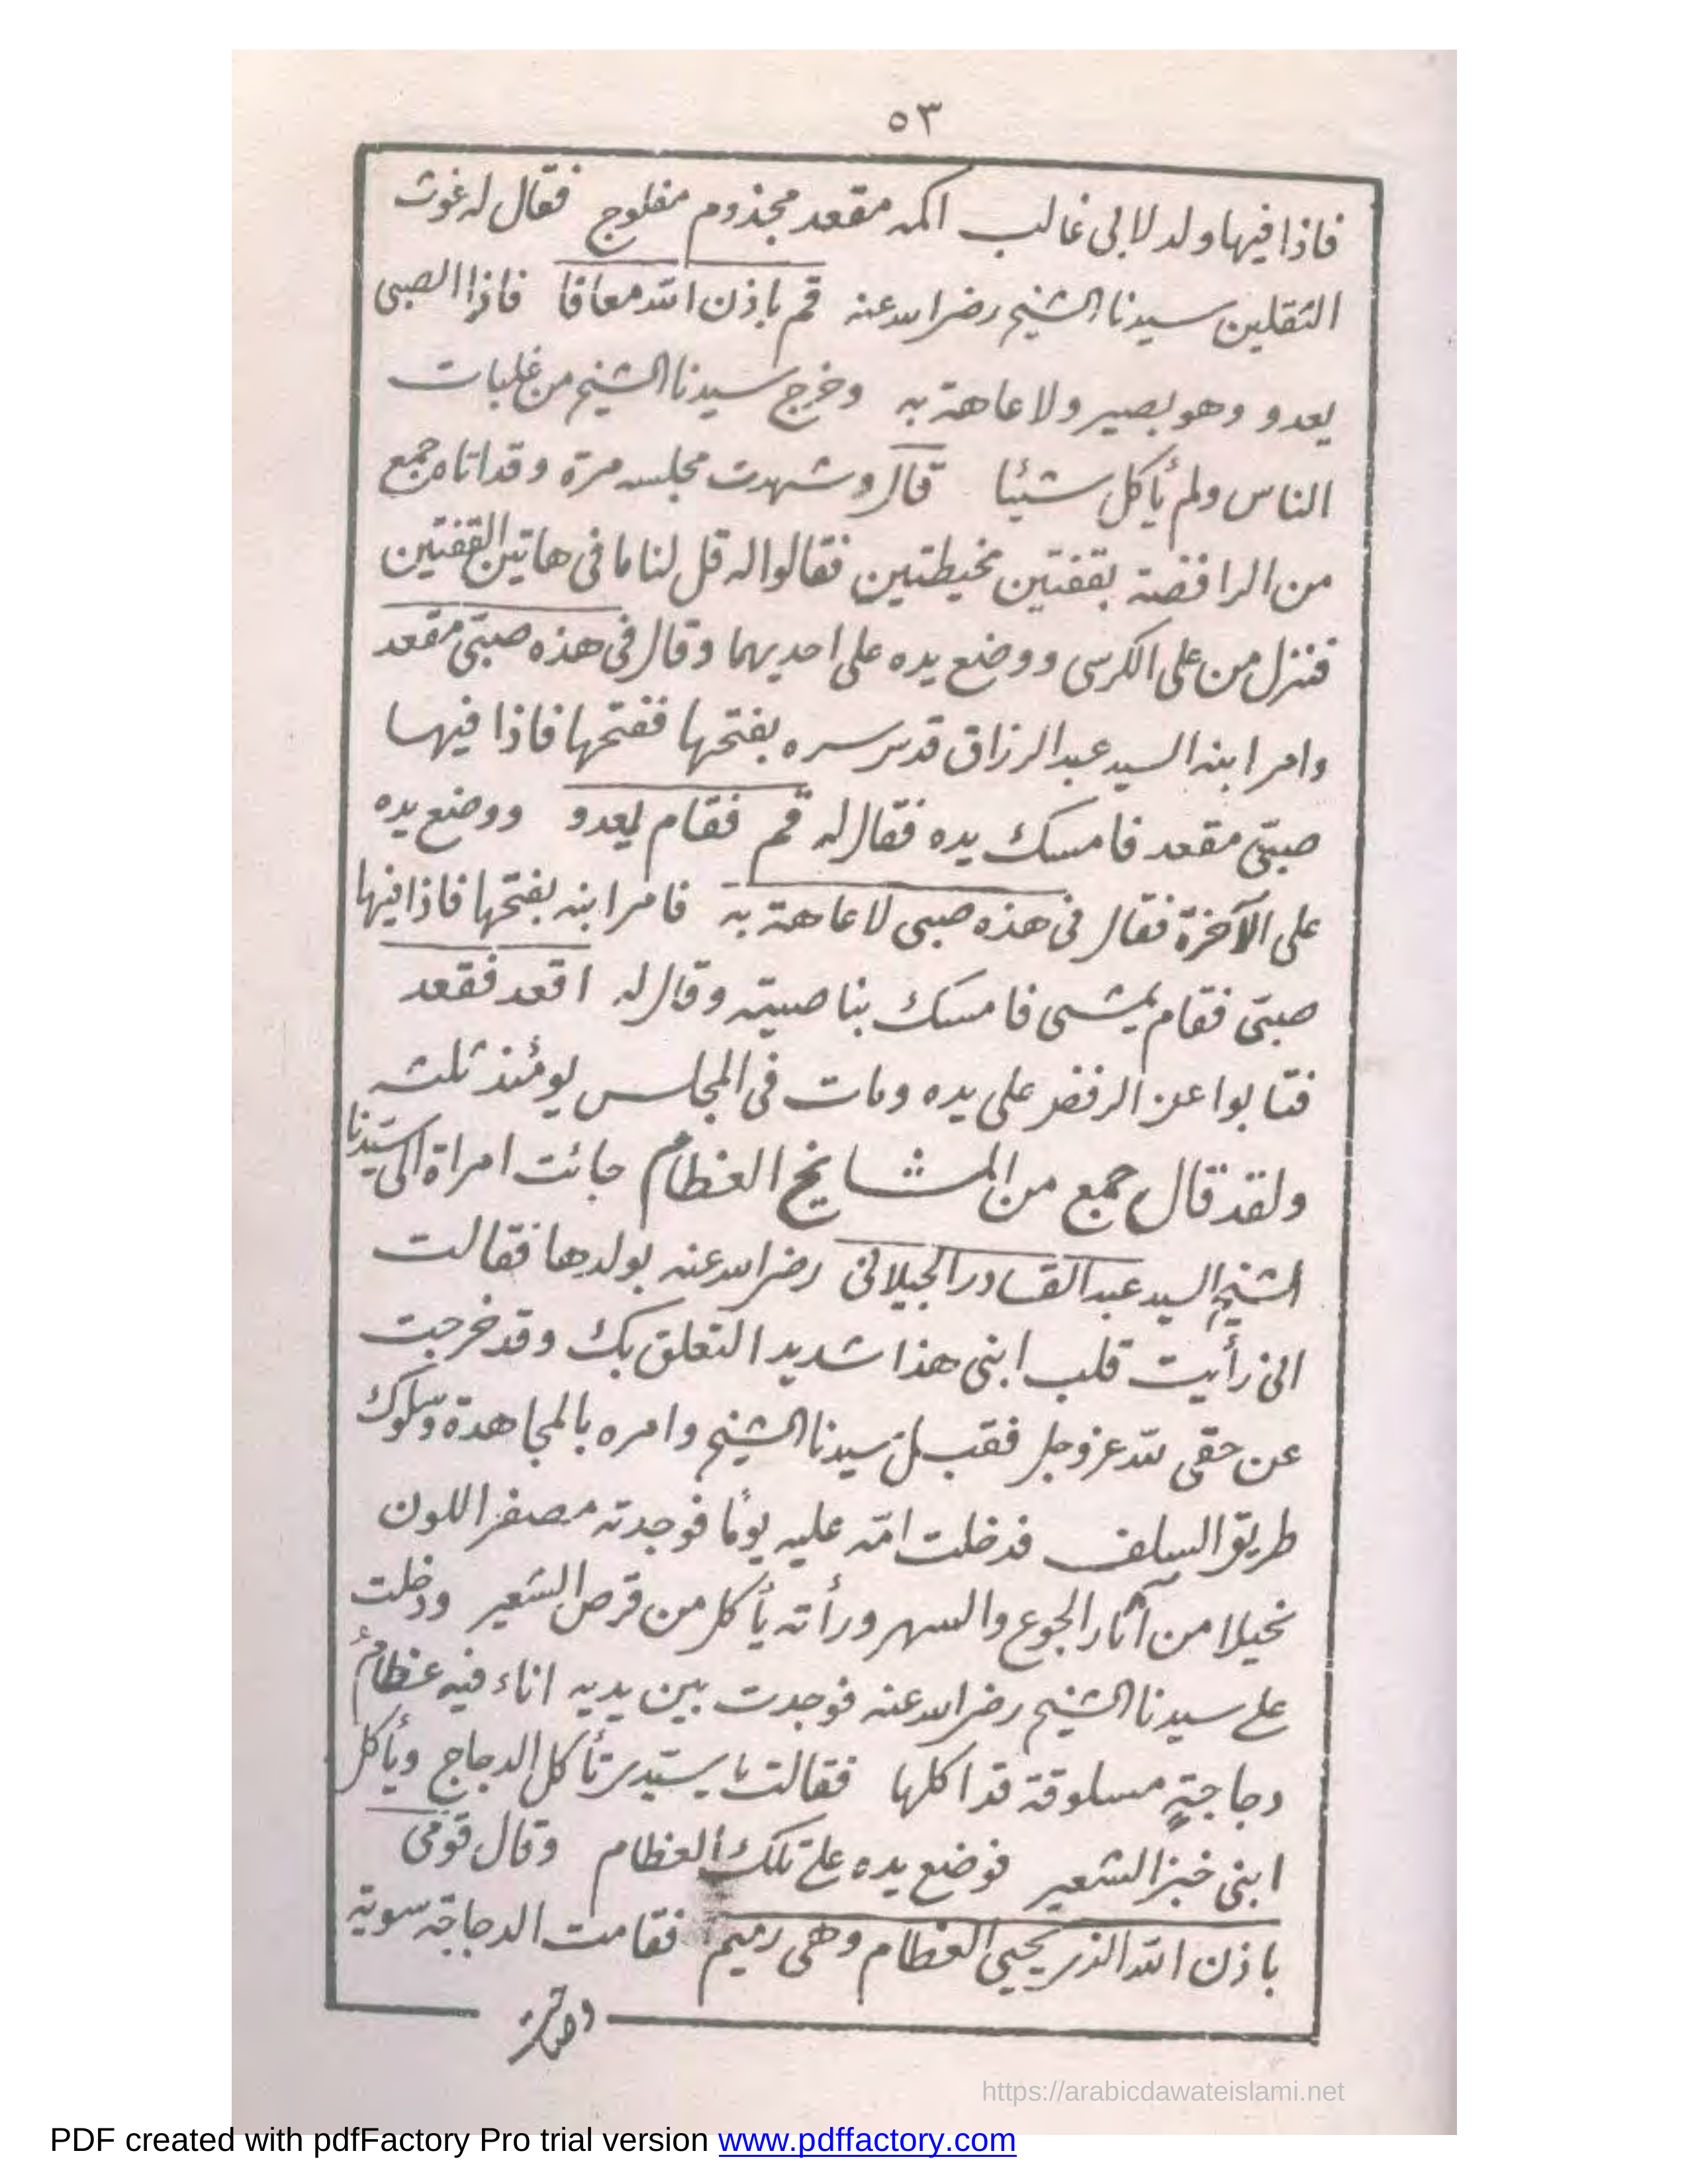 ٥٣
فاذا فيها ولد لابى غالب اكمه مقعد مجذوم مفلوج فقال له غوث
الثقلين سيدنا الشيخ رضى الله عنه قم باذن الله معافا فاذا الصبى
يعدو وهو بصير ولا عاهة به وخرج سيدنا الشيخ من غلبات
الناس ولم يأكل شيئا قال وشهدت مجلسه مرة وقد اتاه جمع
من الرافضة بقفتين مخيطتين فقالوا له قل لنا ما فى هاتين القفتين
فنزل من على الكرسى ووضع يده على احديهما وقال فى هذه صبىّ مقعد
وامر ابنه السيد عبد الرزاق قدس سره بفتحها ففتحها فاذا فيها
صبىّ مقعد فامسك يده فقال له قم فقام يعدو ووضع يده
على الآخرة فقال فى هذه صبى لا عاهة به فامر ابنه بفتحها فاذا فيها
صبىّ فقام يمشى فامسك بناصيته وقال له اقعد فقعد
فتابوا عن الرفض على يده ومات فى المجلس يومئذ ثلثه
ولقد قال جمع من المشايخ العظام جائت امراة الى سيّدنا
الشيخ السيد عبد القادر الجيلانى رضى الله عنه بولدها فقالت
انى رأيت قلب ابنى هذا شديد التعلق بك وقد خرجت
عن حقى لله عز وجل فقبله سيدنا الشيخ وامره بالمجاهدة وسلوك
طريق السلف فدخلت امّه عليه يومًا فوجدته مصفر اللون
نحيلا من آثار الجوع والسهر ورأته يأكل من قرص الشعير ودخلت
على سيدنا الشيخ رضى الله عنه فوجدت بين يديه اناء فيه عظام
دجاجةٍ مسلوقة قد اكلها فقالت يا سيّدى تأكل الدجاج ويأكل
ابنى خبز الشعير فوضع يده على تلك العظام وقال قومى
باذن الله الذى يحيى العظام وهى رميم فقامت الدجاجة سوية
https://arabicdawateislami.net
PDF created with pdfFactory Pro trial version www.pdffactory.com